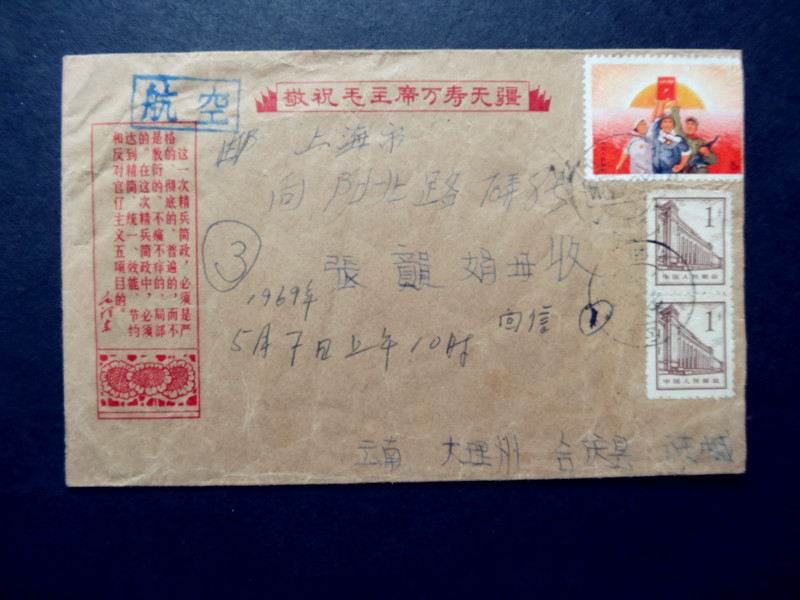 航空
敬祝毛主席万寿无疆
这一次精兵简政，必须是严
格的、彻底的、普遍的，而不
是敷衍的、不痛不痒的、局部
的。在这次精兵简政中，必须
达到精简、统一、效能、节约
和反对官僚主义五项目的。
毛泽东
上海市
向阳北路
張韻娟母收
③
1969年
5月7日上午10时
回信
①
云南 大理州
8
1
中国人民邮政
1
中国人民邮政